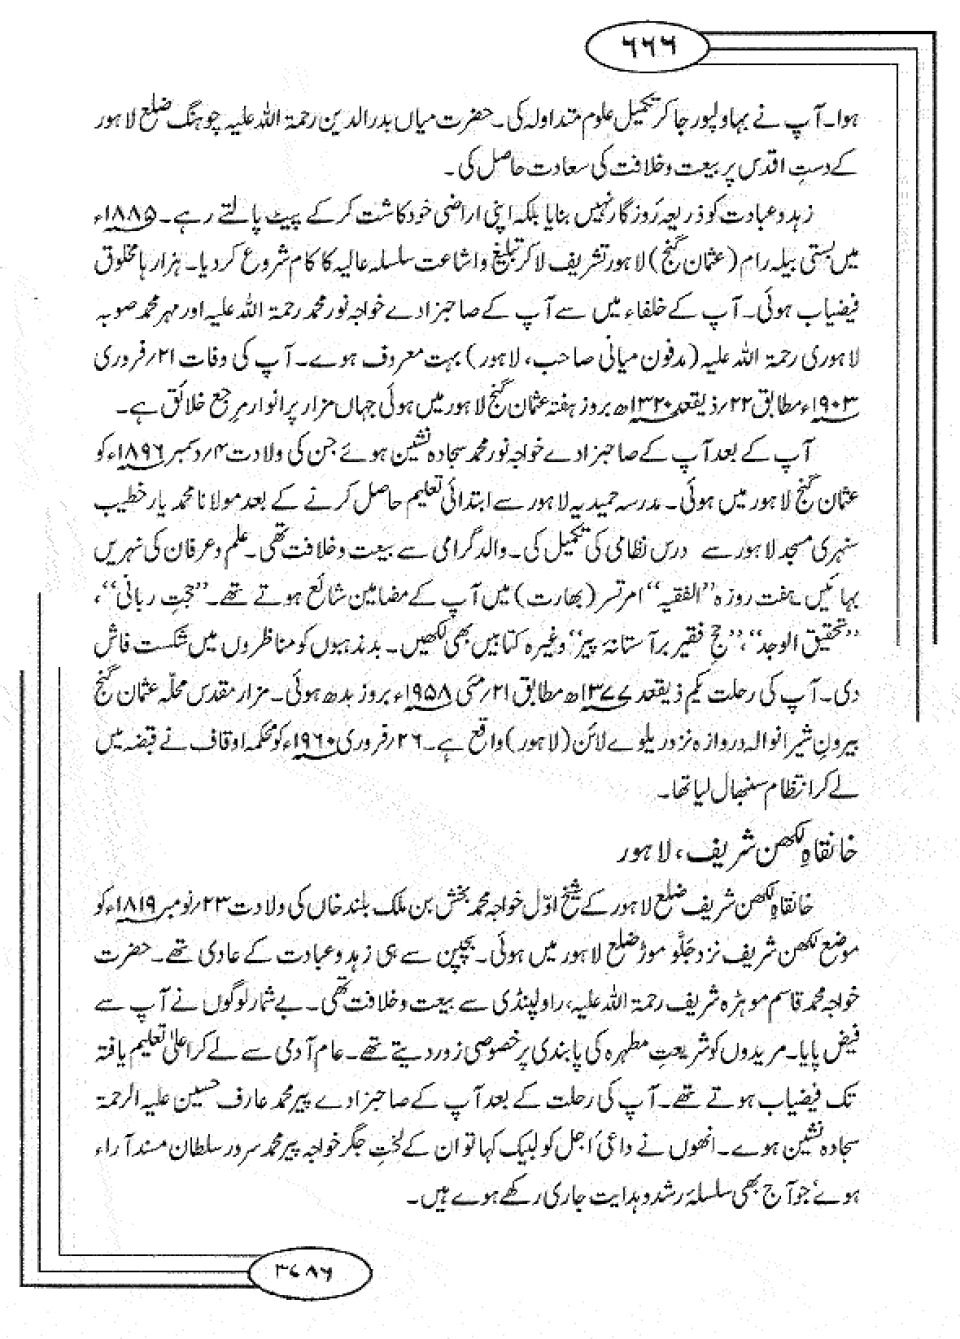 ۶۶۶
ہوا۔ آپ نے بہاولپور جا کر تکمیل علوم متداولہ کی۔ حضرت میاں بدرالدین رحمۃ اللہ علیہ چوہنگ ضلع لاہور
کے دستِ اقدس پر بیعت و خلافت کی سعادت حاصل کی۔
زہد و عبادت کو ذریعہ روزگار نہیں بنایا بلکہ اپنی اراضی خود کاشت کر کے پیٹ پالتے رہے۔ ۱۸۸۵ء
میں بستی بیلہ رام (عثمان گنج) لاہور تشریف لا کر تبلیغ و اشاعت سلسلہ عالیہ کا کام شروع کر دیا۔ ہزارہا مخلوق
فیضیاب ہوئی۔ آپ کے خلفاء میں سے آپ کے صاحبزادے خواجہ نور محمد رحمۃ اللہ علیہ اور مہر محمد صوبہ
لاہوری رحمۃ اللہ علیہ (مدفون میانی صاحب، لاہور) بہت معروف ہوے۔ آپ کی وفات ۲۱؍ فروری
۱۹۰۳ء مطابق ۲۲؍ ذیقعد ۱۳۲۰ھ بروز ہفتہ عثمان گنج لاہور میں ہوئی جہاں مزار پر انوار مرجع خلائق ہے۔
آپ کے بعد آپ کے صاحبزادے خواجہ نور محمد سجادہ نشین ہوئے جن کی ولادت ۴؍ دسمبر ۱۸۹۶ء کو
عثمان گنج لاہور میں ہوئی۔ مدرسہ حمیدیہ لاہور سے ابتدائی تعلیم حاصل کرنے کے بعد مولانا محمد یار خطیب
سنہری مسجد لاہور سے درس نظامی کی تکمیل کی۔ والد گرامی سے بیعت و خلافت تھی۔ علم و عرفان کی نہریں
بہائیں۔ ہفت روزہ ”الفقیہ“ امرتسر (بھارت) میں آپ کے مضامین شائع ہوتے تھے۔ ”حجتِ ربانی“،
”تحقیق الوجد“، ”حج فقیر بر آستانہ پیر“ وغیرہ کتابیں بھی لکھیں۔ بدمذہبوں کو مناظروں میں شکست فاش
دی۔ آپ کی رحلت یکم ذیقعد ۱۳۷۷ھ مطابق ۲۱؍ مئی ۱۹۵۸ء بروز بدھ ہوئی۔ مزار مقدس محلّہ عثمان گنج
بیرونِ شیرانوالہ دروازہ نزد ریلوے لائن (لاہور) واقع ہے۔ ۲۶؍ فروری ۱۹۶۰ء کو محکمہ اوقاف نے قبضہ میں
لے کر انتظام سنبھال لیا تھا۔
خانقاہِ لکھن شریف، لاہور
خانقاہِ لکھن شریف ضلع لاہور کے شیخ اوّل خواجہ محمد بخش بن ملک بلند خاں کی ولادت ۲۳؍ نومبر ۱۸۱۹ء کو
موضع لکھن شریف نزد جلّو موڑ ضلع لاہور میں ہوئی۔ بچپن سے ہی زہد و عبادت کے عادی تھے۔ حضرت
خواجہ محمد قاسم موہڑہ شریف رحمۃ اللہ علیہ، راولپنڈی سے بیعت و خلافت تھی۔ بے شمار لوگوں نے آپ سے
فیض پایا۔ مریدوں کو شریعتِ مطہرہ کی پابندی پر خصوصی زور دیتے تھے۔ عام آدمی سے لے کر اعلیٰ تعلیم یافتہ
تک فیضیاب ہوتے تھے۔ آپ کی رحلت کے بعد آپ کے صاحبزادے پیر محمد عارف حسین علیہ الرحمۃ
سجادہ نشین ہوے۔ انھوں نے داعیٔ اجل کو لبیک کہا تو ان کے لختِ جگر خواجہ پیر محمد سرور سلطان مسند آراء
ہوے جو آج بھی سلسلۂ رشد و ہدایت جاری رکھے ہوے ہیں۔
۳۷۸۶